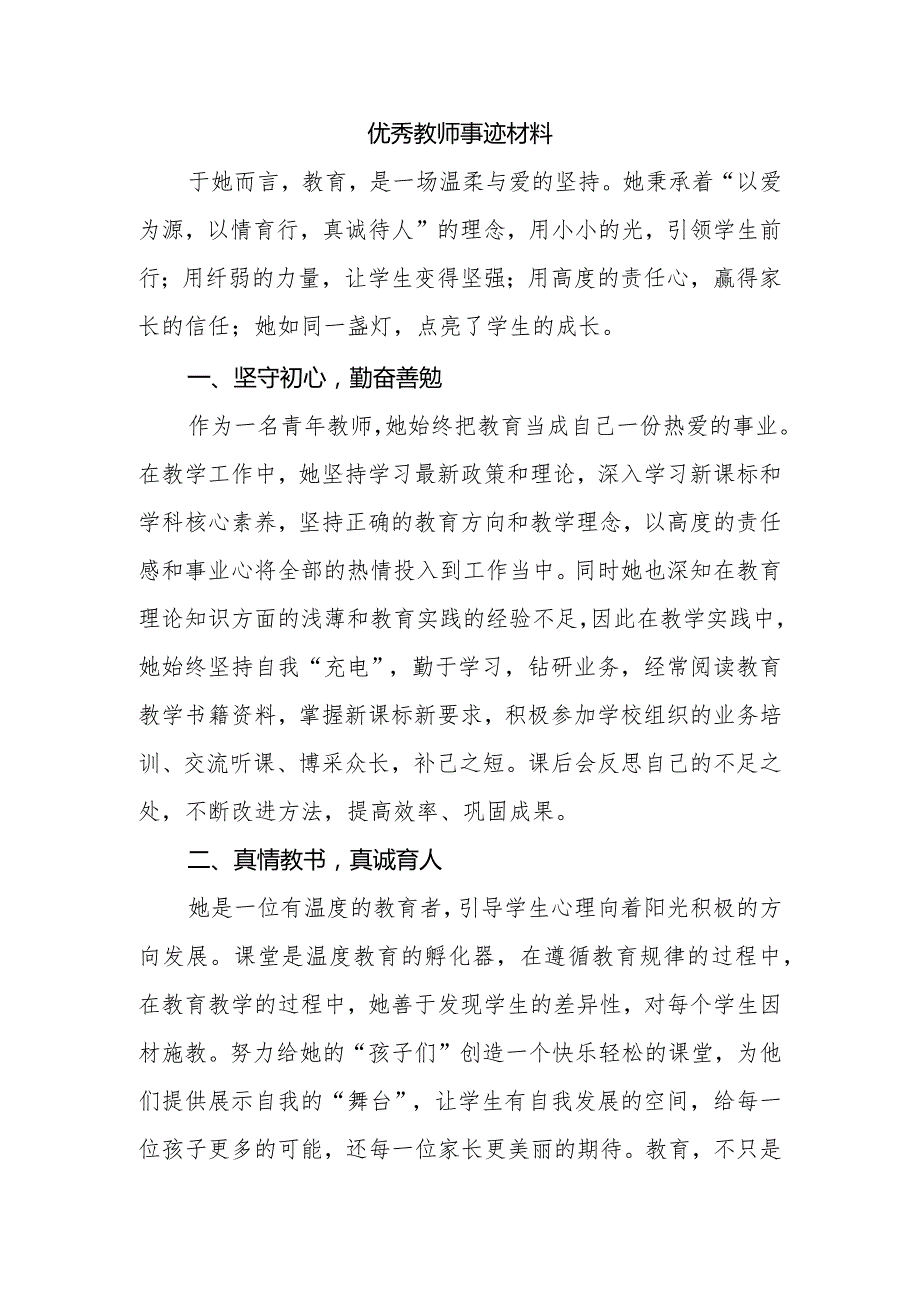 优秀教师事迹材料
于她而言，教育，是一场温柔与爱的坚持。她秉承着“以爱
为源，以情育行，真诚待人”的理念，用小小的光，引领学生前
行；用纤弱的力量，让学生变得坚强；用高度的责任心，赢得家
长的信任；她如同一盏灯，点亮了学生的成长。
一、坚守初心，勤奋善勉
作为一名青年教师，她始终把教育当成自己一份热爱的事业。
在教学工作中，她坚持学习最新政策和理论，深入学习新课标和
学科核心素养，坚持正确的教育方向和教学理念，以高度的责任
感和事业心将全部的热情投入到工作当中。同时她也深知在教育
理论知识方面的浅薄和教育实践的经验不足，因此在教学实践中，
她始终坚持自我“充电”，勤于学习，钻研业务，经常阅读教育
教学书籍资料，掌握新课标新要求，积极参加学校组织的业务培
训、交流听课、博采众长，补己之短。课后会反思自己的不足之
处，不断改进方法，提高效率、巩固成果。
二、真情教书，真诚育人
她是一位有温度的教育者，引导学生心理向着阳光积极的方
向发展。课堂是温度教育的孵化器，在遵循教育规律的过程中，
在教育教学的过程中，她善于发现学生的差异性，对每个学生因
材施教。努力给她的“孩子们”创造一个快乐轻松的课堂，为他
们提供展示自我的“舞台”，让学生有自我发展的空间，给每一
位孩子更多的可能，还每一位家长更美丽的期待。教育，不只是